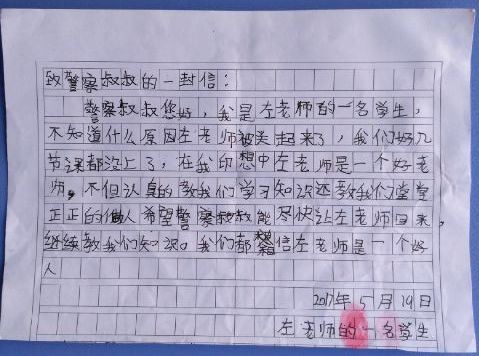 致警察叔叔的一封信：
警察叔叔您好，我是左老师的一名学生，
不知道什么原因左老师被关起来了，我们好几
节课都没上了，在我印想中左老师是一个好老
师。不但认真的教我们学习知识还教我们堂堂
正正的做人希望警察叔叔能尽快让左老师回来，
继续教我们知识。我们都相信左老师是一个好
人
2017年5月19日
左老师的一名学生